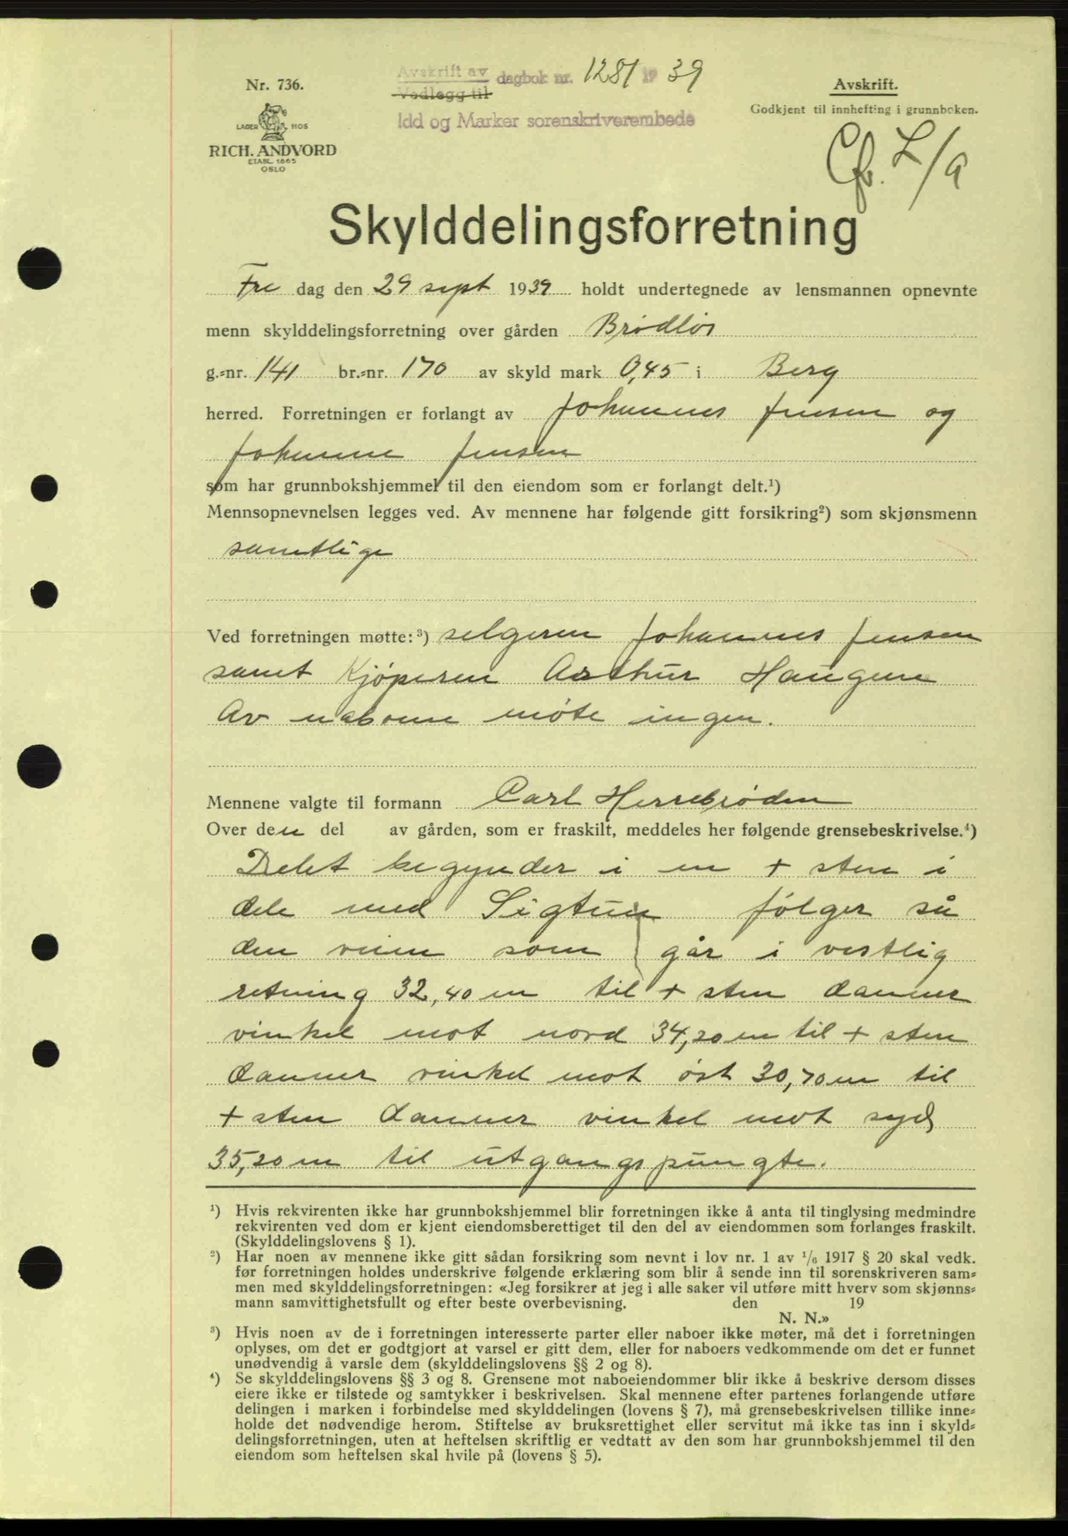 Nr. 736.
LAGER HOS
RICH. ANDVORD
ETABL. 1865
OSLO
Avskrift av dagbok nr. 1281 1939
Vedlegg til
Idd og Marker sorenskriverembede
Avskrift.
Godkjent til innhefting i grunnboken.
Cfr. L/a
Skylddelingsforretning
Fre dag den 29 sept 1939 holdt undertegnede av lensmannen opnevnte
menn skylddelingsforretning over gården Brødløs
g.-nr. 141 br.-nr. 170 av skyld mark 0,45 i Berg
herred. Forretningen er forlangt av Johannes Jensen og
Johanne Jensen
som har grunnbokshjemmel til den eiendom som er forlangt delt.¹)
Mennsopnevnelsen legges ved. Av mennene har følgende gitt forsikring²) som skjønsmenn
samtlige
Ved forretningen møtte:³) selgeren Johannes Jensen
samt Kjøperen Arthur Haugene
Av naboene møte ingen.
Mennene valgte til formann Carl Herrebrøden
Over den del av gården, som er fraskilt, meddeles her følgende grensebeskrivelse.⁴)
Delet begynder i en + sten i
dele med Sigtun følger så
den veien som går i vestlig
retning 32,40 m til + sten danner
vinkel mot nord 34,20 m til + sten
danner vinkel mot øst 30,70 m til
+ sten danner vinkel mot syd
35,20 m til utgangspungte.
¹) Hvis rekvirenten ikke har grunnbokshjemmel blir forretningen ikke å anta til tinglysing medmindre
rekvirenten ved dom er kjent eiendomsberettiget til den del av eiendommen som forlanges fraskilt.
(Skylddelingslovens § 1).
²) Har noen av mennene ikke gitt sådan forsikring som nevnt i lov nr. 1 av 1/6 1917 § 20 skal vedk.
før forretningen holdes underskrive følgende erklæring som blir å sende inn til sorenskriveren sam-
men med skylddelingsforretningen: «Jeg forsikrer at jeg i alle saker vil utføre mitt hverv som skjønns-
mann samvittighetsfullt og efter beste overbevisning. den 19
N. N.»
³) Hvis noen av de i forretningen interesserte parter eller naboer ikke møter, må det i forretningen
oplyses, om det er godtgjort at varsel er gitt dem, eller for naboers vedkommende om det er funnet
unødvendig å varsle dem (skylddelingslovens §§ 2 og 8).
⁴) Se skylddelingslovens §§ 3 og 8. Grensene mot naboeiendommer blir ikke å beskrive dersom disses
eiere ikke er tilstede og samtykker i beskrivelsen. Skal mennene efter partenes forlangende utføre
delingen i marken i forbindelse med skylddelingen (lovens § 7), må grensebeskrivelsen tillike inne-
holde det nødvendige herom. Stiftelse av bruksrettighet eller servitut må ikke tas inn i skyld-
delingsforretningen, uten at heftelsen skriftlig er vedtatt av den som har grunnbokshjemmel til den
eiendom som heftelsen skal hvile på (lovens § 5).